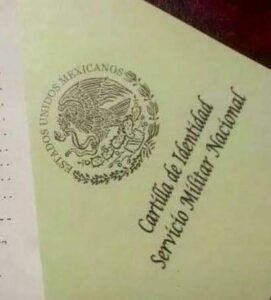 ESTADOS UNIDOS MEXICANOS
Cartilla de Identidad
Servicio Militar Nacional